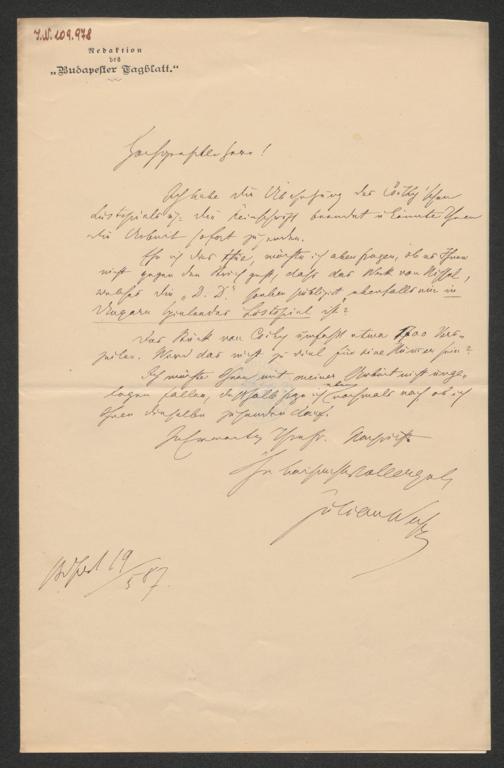 I.N. 109.978
Redaktion
des
„Budapester Tagblatt.“
Hochgeehrter Herr!
Ich habe die Übersetzung des Csiky'schen
Lustspiels u. die Reinschrift beendet u. könnte Ihnen
die Arbeit sofort zusenden.
Ehe ich das thue, möchte ich aber fragen, ob es Ihnen
nicht gegen den Strich geht, dass das Stück von
welches die „D. D.“ soeben ebenfalls ein in
Ungarn spielendes Lustspiel ist?
Das Stück von Csiky umfasst etwa Vers-
zeilen. Wird das nicht zu viel für eine Nummer sein?
Ich möchte Ihnen mit meiner Arbeit nicht unge-
legen fallen, deshalb frage ich nochmals nach, ob ich
Ihnen dieselbe zusenden darf.
In Erwartung Ihrer Nachricht
Ihr hochachtungsvoll ergeb.
Julian Weiß
Bdpest 19/5 87.